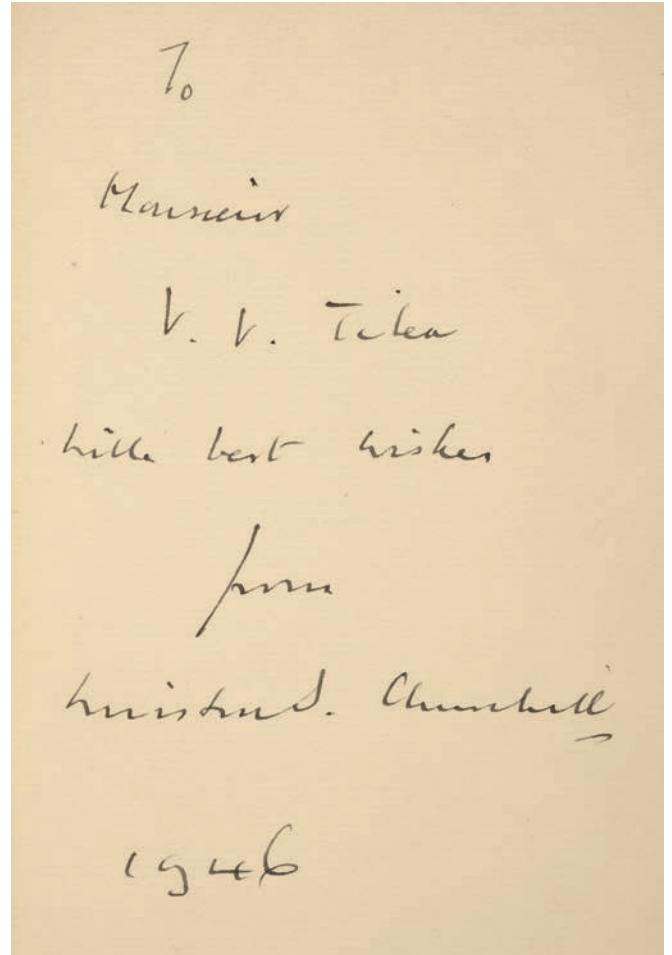 To
Monsieur
V. V. Tilea
with best wishes
from
Winston S. Churchill
1946